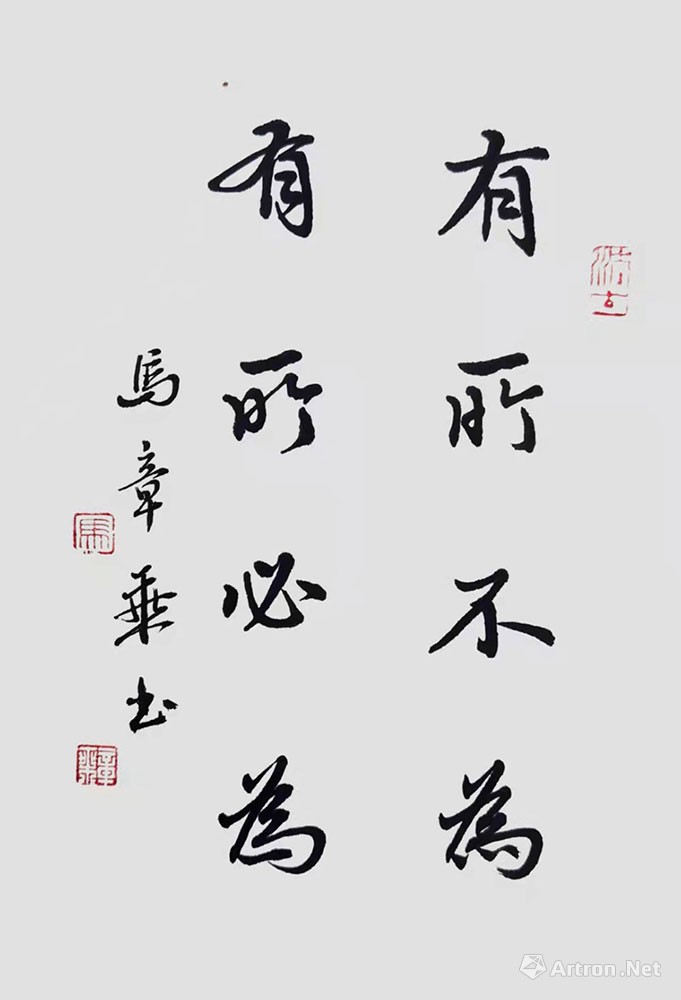 有所不為
有所必為
馬章乘书
馬
章乘
Artron.Net